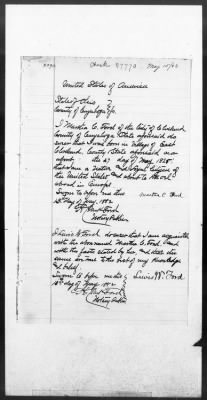 United States of America
State of Ohio
County of Cuyahoga
I Martha C. Ford of the City of Cleveland
County of Cuyahoga State aforesaid do
swear that I was born in Village of East
Cleveland, County State aforesaid on or
about the 27 day of May 1825
that I am a native and loyal citizen of
the United States and about to travel
abroad in Europe
Sworn to before me this
Martha C. Ford
15th Day of May 1882
Notary Public
I Lewis W. Ford do swear that I am acquainted
with the above named Martha C. Ford and
with the facts stated by her, and that the
same are true to the best of my knowledge
and belief.
Sworn to before me this
Lewis W. Ford
15th day of May 1882
Notary Public